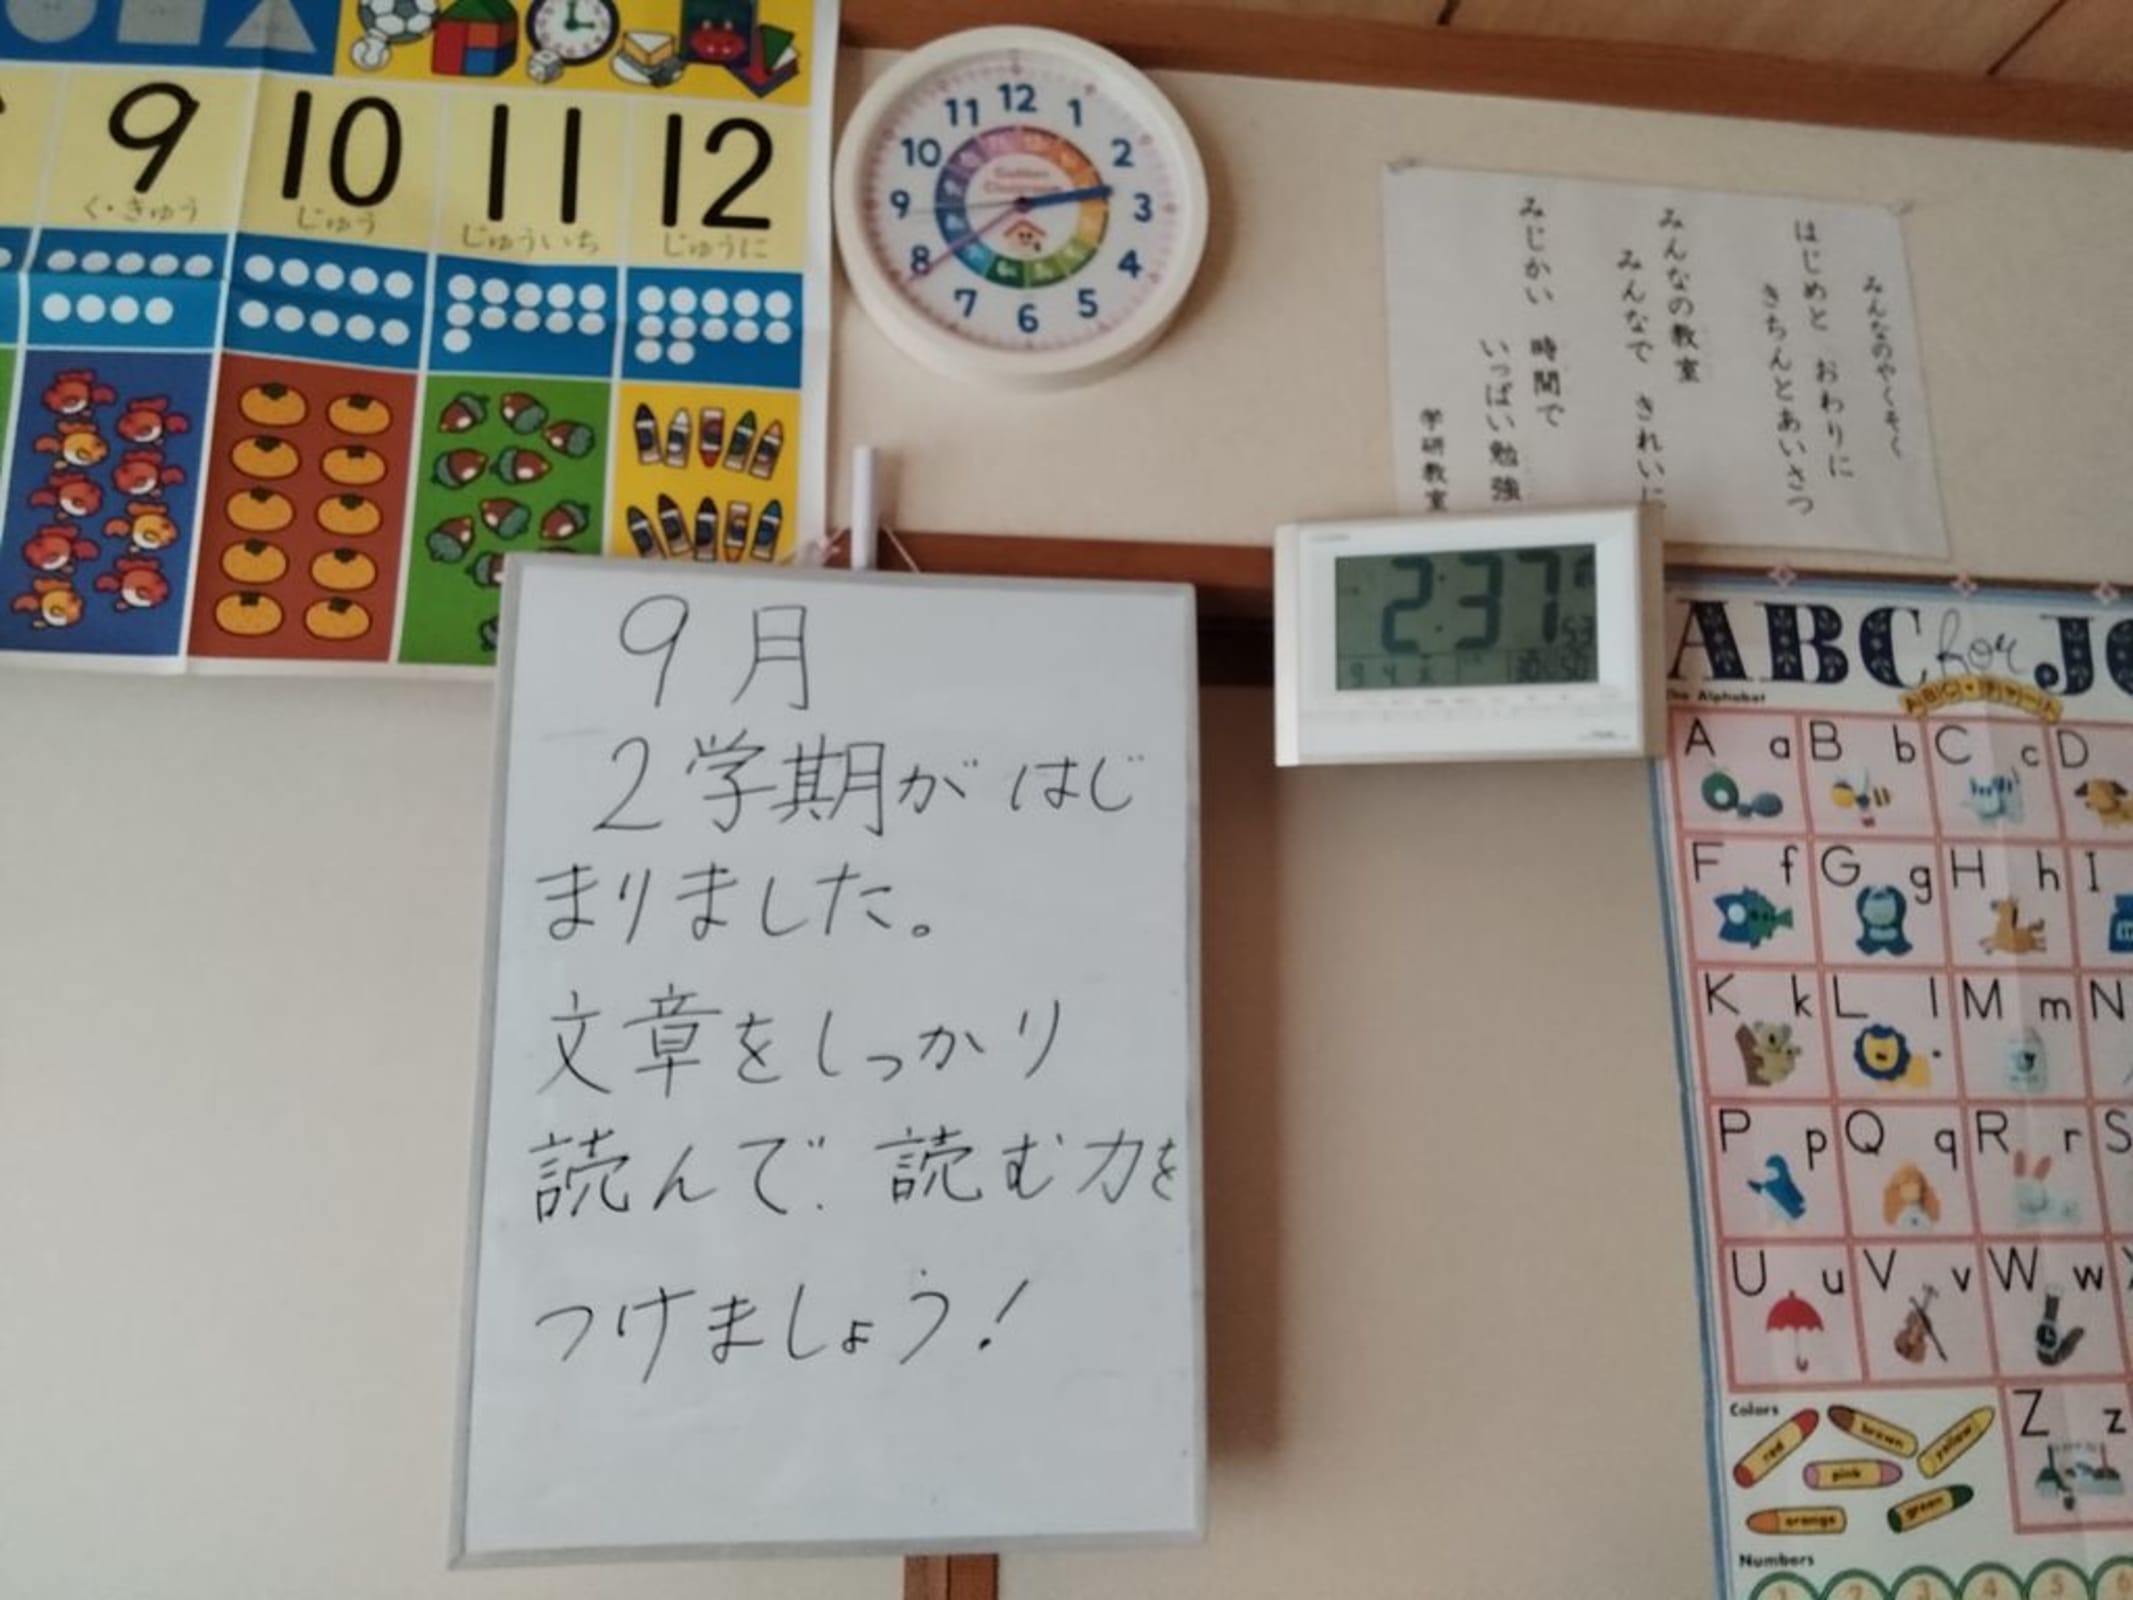 9 10 11 12
く・きゅう じゅう じゅういち じゅうに
12
1
2
3
4
5
6
7
8
9
10
11
みんなのやくそく
はじめと おわりに
きちんとあいさつ
みんなの教室
みんなで きれいに
みじかい 時間で
いっぱい勉強
学研教室
9月
2学期が はじ
まりました。
文章をしっかり
読んで、読む力を
つけましょう!
2:37 53
9 4
ABC for
The Alphabet
A a B b C c D
F f G g H h I
K k L l M m N
P p Q q R r S
U u V v W w
Z z
Colors
red brown yellow
pink
orange green
Numbers
1 2 3 4 5 6